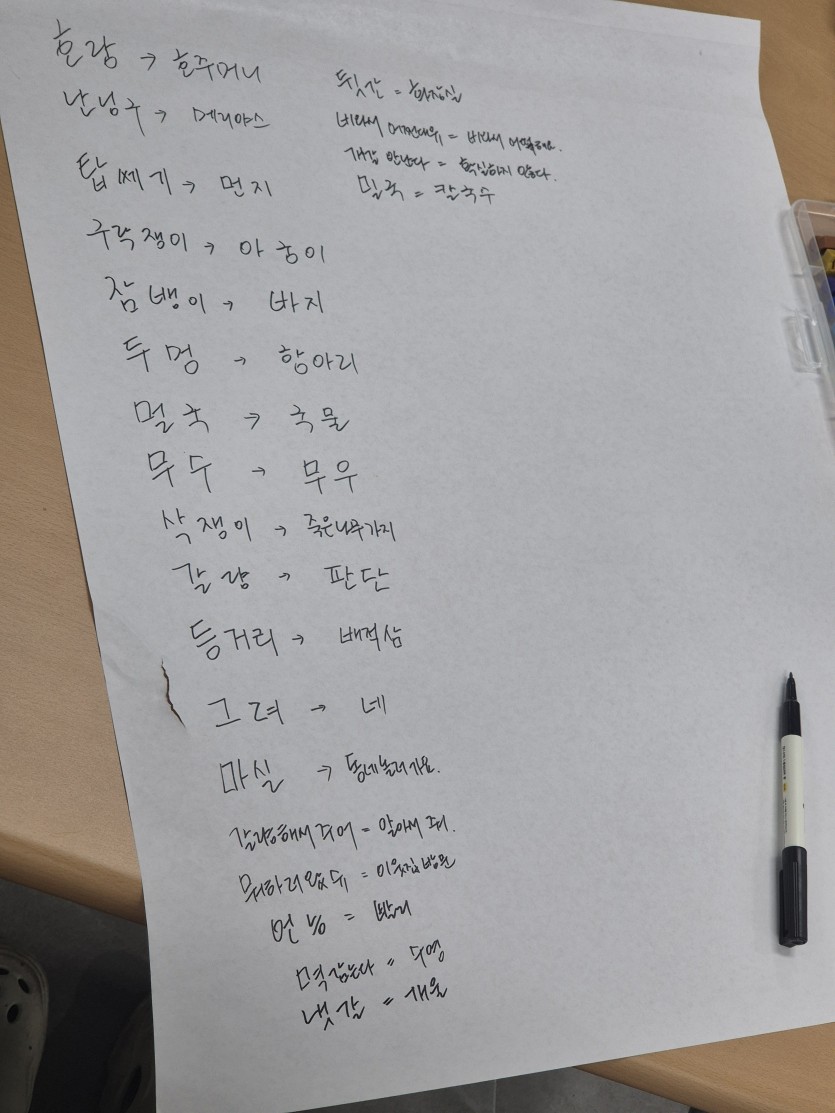 호랑 → 호주머니
난닝구 → 메리야스
탑쎄기 → 먼지
구락쟁이 → 아궁이
잠뱅이 → 바지
두멍 → 항아리
멀국 → 국물
무수 → 무우
삭쟁이 → 죽은나무가지
갈량 → 판단
등거리 → 베적삼
그려 → 네
마실 → 동네놀러가요.
갈량해서 주어 = 알아서 줘.
뭐하러 왔뒤 = 이웃집 방문
언능 = 빨리
멱감는다 = 수영
냇갈 = 개울
뒷간 = 화장실
비라서 어쩐대유 = 비라서 어떡해요.
개갈 안난다 = 확실하지 않다.
밀국 = 칼국수